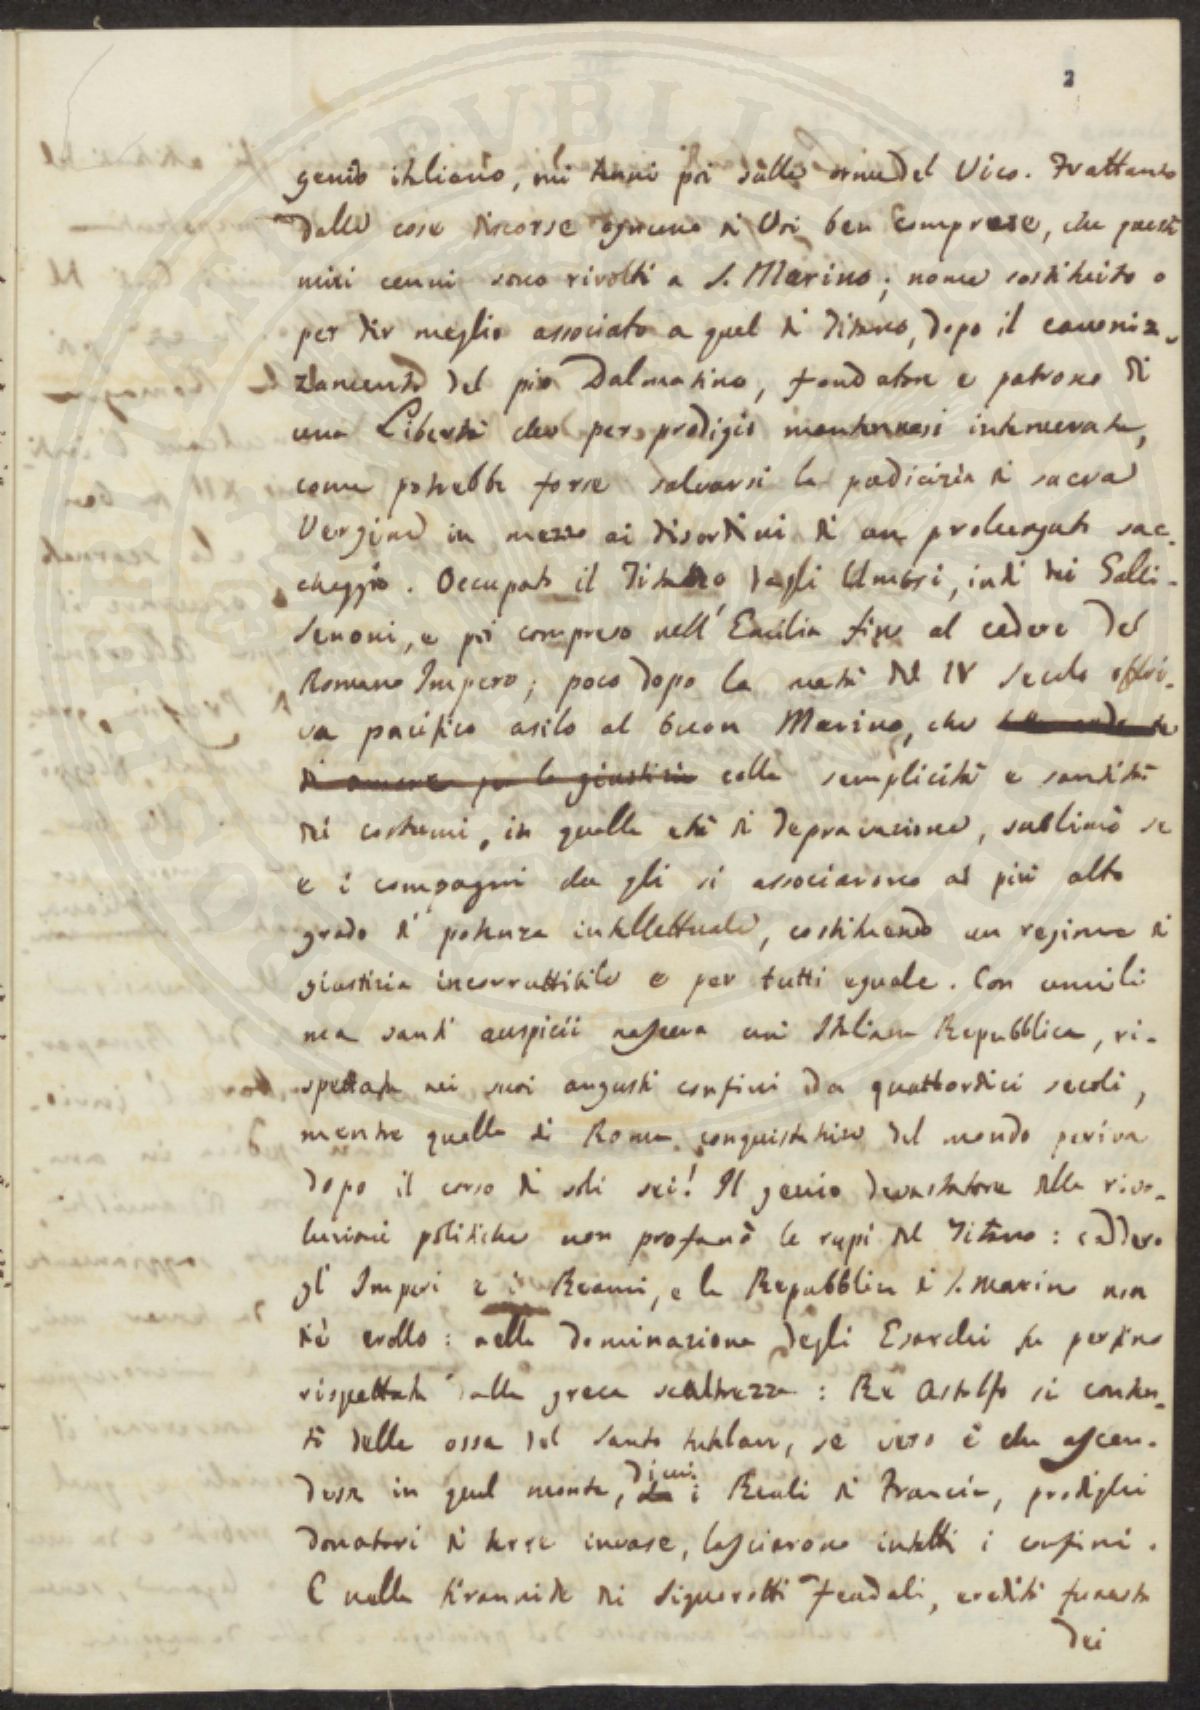 2
genio italiano, mi tenni poi sulle orme del Vico. Frattanto
dalle cose discorse ognuno di Voi ben comprese, che questi
miei cenni sono rivolti a S. Marino; nome sostituito o
per dir meglio associato a quel di Titano, dopo il canoniz-
zamento del pio Dalmatino, fondatore e patrono di
una Libertà che per prodigio mantennesi intemerata,
come potrebbe forse salvarsi la pudicizia di sacra
Vergine in mezzo ai disordini di un prolungato sac-
cheggio. Occupato il Titano dagli Umbri, indi dai Galli-
Senoni, e poi compreso nell'Emilia fino al cedere del
Romano Impero; poco dopo la metà del IV secolo offri-
va pacifico asilo al buon Marino, che
di amore per la giustizia colla semplicità e santità
dei costumi, in quella età di depravazione, sublimò se
e i compagni che gli si associarono al più alto
grado di potenza intellettuale, costituendo un regime di
giustizia incorruttibile e per tutti eguale. Con umili
ma santi auspicii nasceva un' Italiana Repubblica, ri-
spettata nei suoi angusti confini da quattordici secoli,
mentre quella di Roma conquistatrice del mondo periva
dopo il corso di soli sei! Il genio devastatore delle rivo-
luzioni politiche non profanò le rupi del Titano: caddero
gl' Imperi e i Reami, e la Repubblica di S. Marino non
diè crollo: nella dominazione degli Esarchi fu perfino
rispettata dalla greca scaltrezza: Re Astolfo si conten-
tò delle ossa del Santo tutelare, se vero è che ascen-
desse in quel monte, dicui i Reali di Francia, prodighi
donatori di terre invase, lasciarono intatti i confini.
E nella tirannide dei Signorotti feudali, eredità funesta
dei